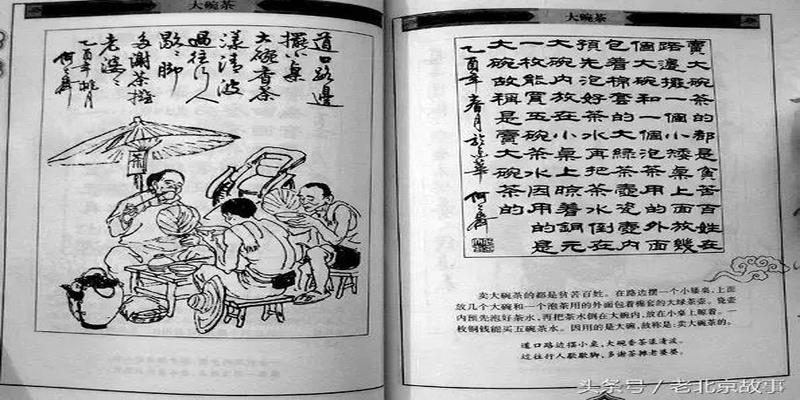 大碗茶
道口路邊
擺小桌
大碗香茶
漾清波
過往行人
歇歇脚
多謝茶攤
老婆婆
乙酉年桃月
何大齊
茶
大碗茶
賣大碗茶的都是貧苦百姓在
路邊擺一個小矮桌上面放幾
個大碗和一個泡茶用的外面
包着棉套的大綠茶壺瓷壺内
預先泡好茶水再把茶水倒在
大碗内放在小桌上晾着銅元
一枚能買五碗茶水因用的是
大碗故稱是賣大碗茶的
乙酉年春月於京華 何大齊
卖大碗茶的都是贫苦百姓。在路边摆一个小矮桌,上面
放几个大碗和一个泡茶用的外面包着棉套的大绿茶壶。瓷壶
内预先泡好茶水,再把茶水倒在大碗内,放在小桌上晾着。一
枚铜钱能买五碗茶水。因用的是大碗,故称是:卖大碗茶的。
道口路边摆小桌,大碗香茶漾清波。
过往行人歇歇脚,多谢茶摊老婆婆。
头条号/老北京故事